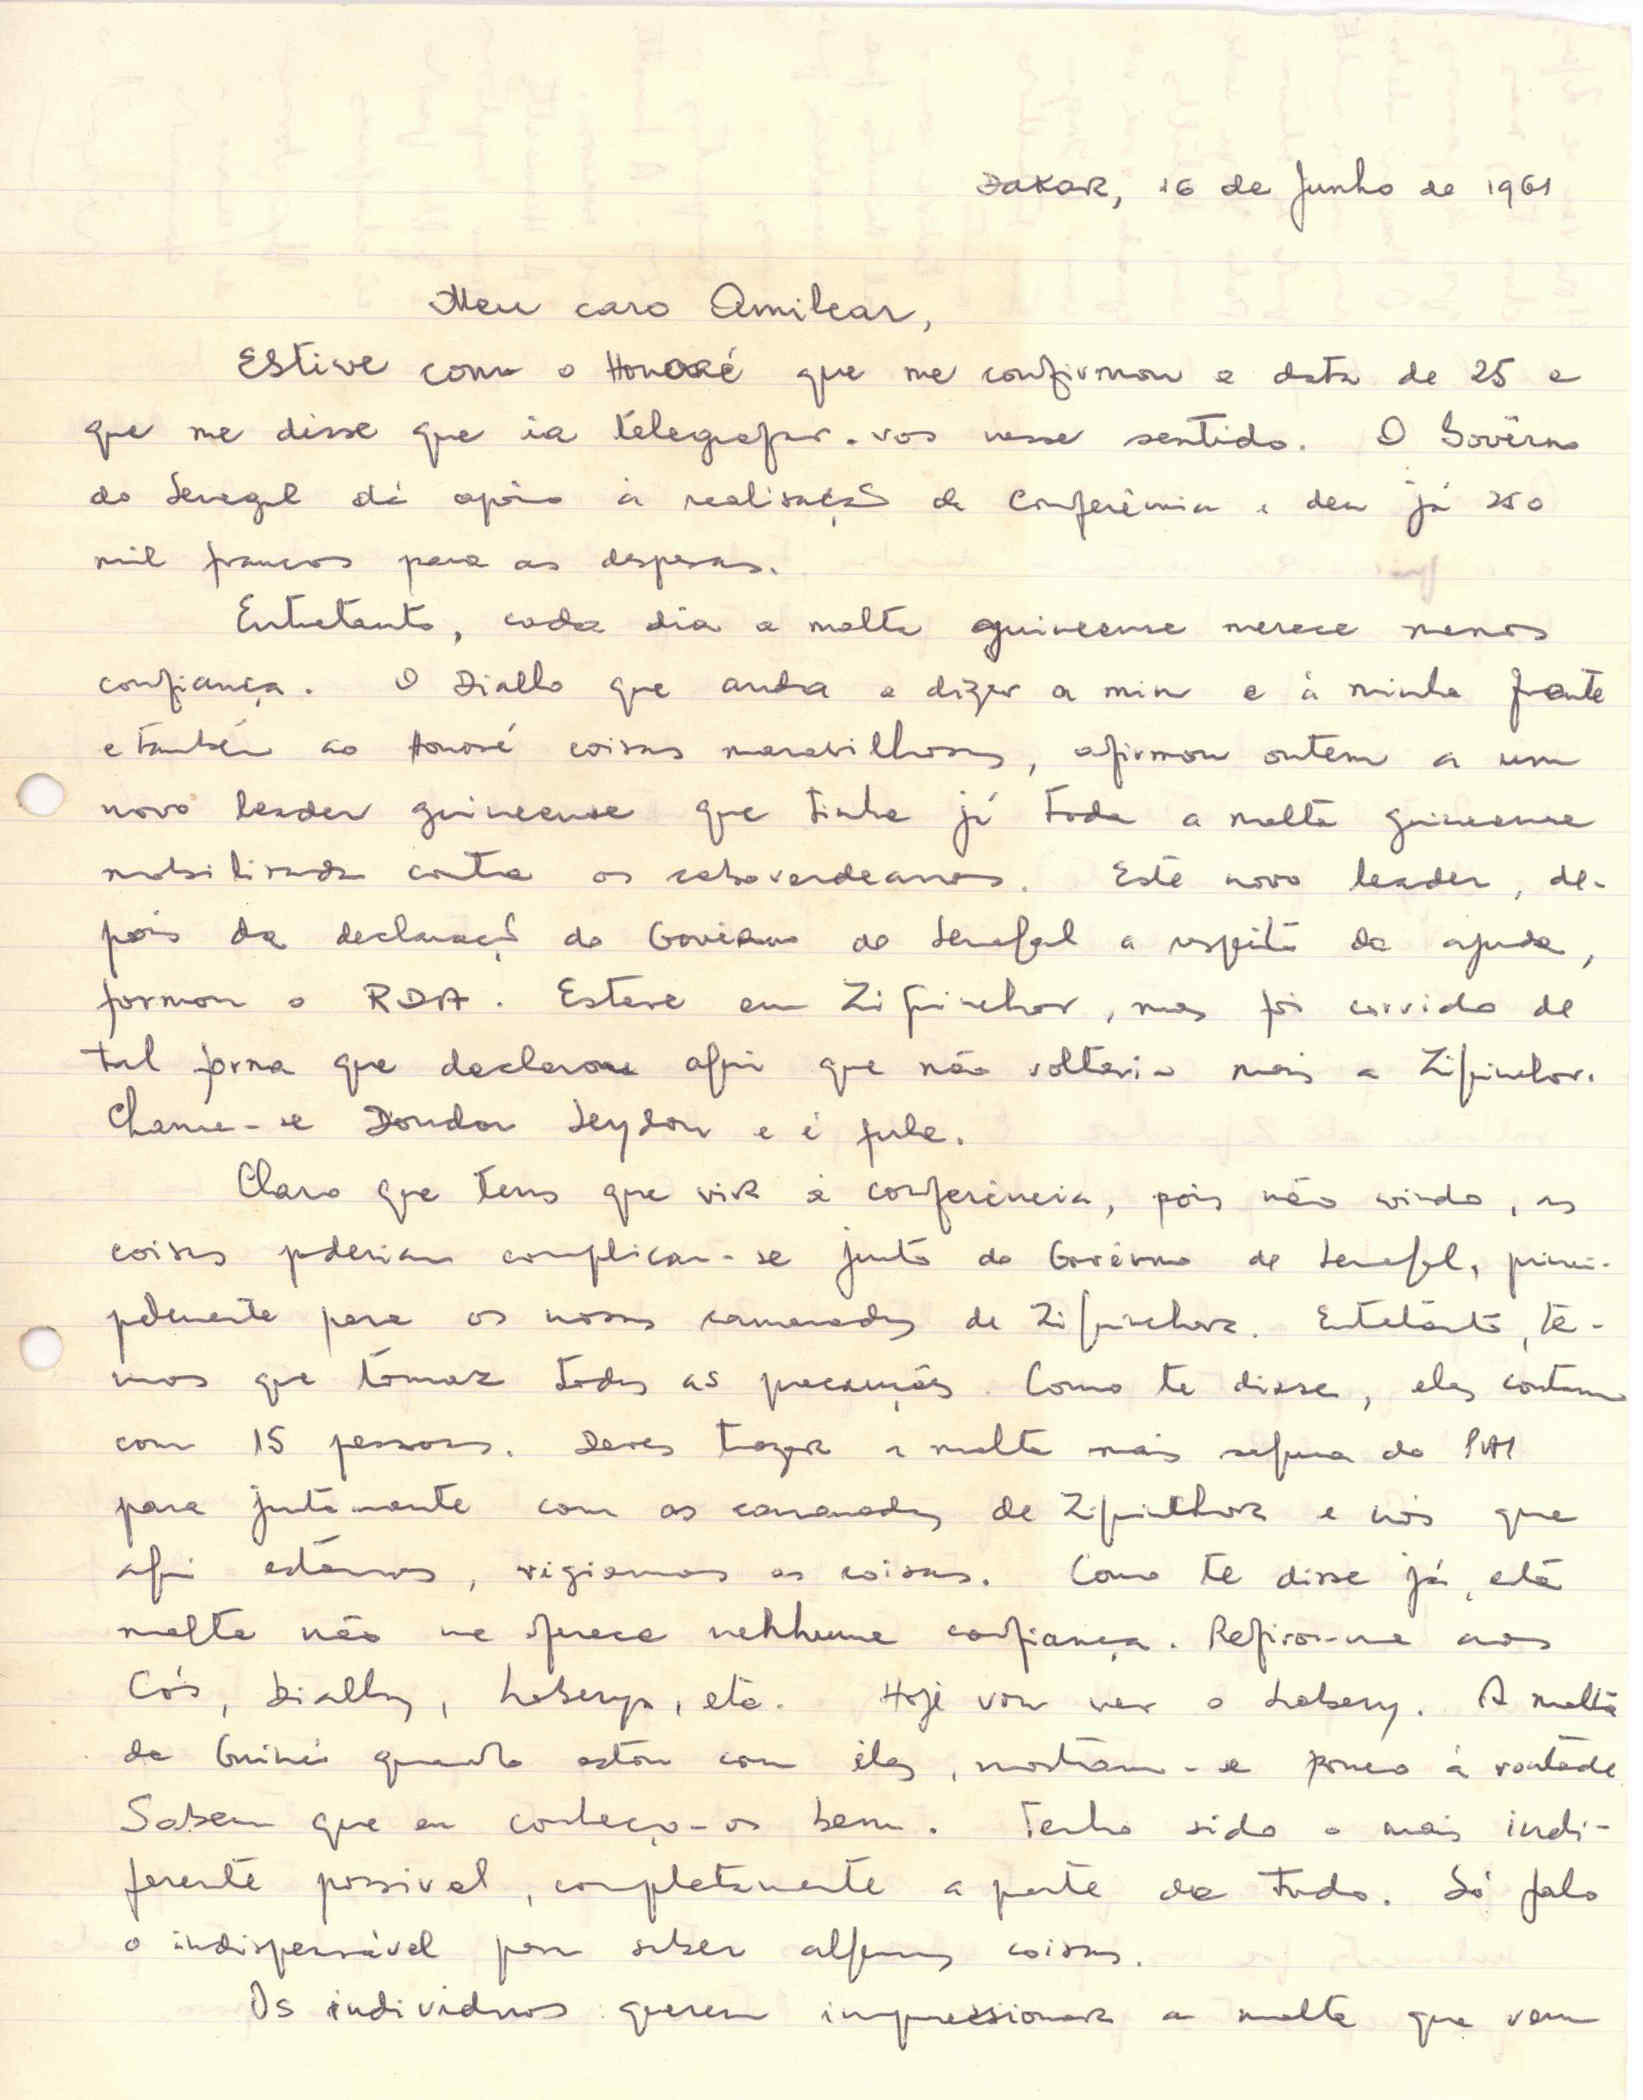 Dakar, 16 de Junho de 1961
Meu caro Amilcar,
Estive com o Honoré que me confirmou a data de 25 e
que me disse que ia telegrafar-vos nesse sentido. O Govêrno
do Senegal dá apôio à realisação da Conferência e deu já 250
mil francos para as despesas.
Entretanto, cada dia a malta guineense merece menos
confiança. O Diallo que anda a dizer a mim e à minha frente
e também ao Honoré coisas maravilhosas, afirmou ontem a um
novo leader guineense que tinha já toda a malta guineense
mobilisada contra os caboverdeanos. Este novo leader, de-
pois da declaração do Govêrno do Senegal a respeito da ajuda,
formou o RDA. Esteve em Ziguinchor, mas foi corrido de
tal forma que declarou aqui que não voltaria mais a Ziguinchor.
Chama-se Doudou Seydou e é fula.
Claro que tens que vir à conferência, pois não vindo, as
coisas poderiam complicar-se junto do Govêrno de Senegal, princi-
palmente para os nossos camaradas de Ziguinchor. Entretanto, te-
mos que tomar todas as precauções. Como te disse, eles contam
com 15 pessoas. Deves trazer a malta mais segura do PAI
para juntamente com os camaradas de Ziguinchor e nós que
aqui estamos, vigiarmos as coisas. Como te disse já, esta
malta não me oferece nenhuma confiança. Refiro-me aos
Cós, Diallos, Laberys, etc. Hoje vou ver o Labery. A malta
da Guiné quando estou com êles, mostram-se pouco à vontade.
Sabem que eu conheço-os bem. Tenho sido o mais indi-
ferente possivel, completamente a parte de tudo. Só falo
o indispensável para saber algumas coisas.
Os individuos querem impressionar a malta que vem